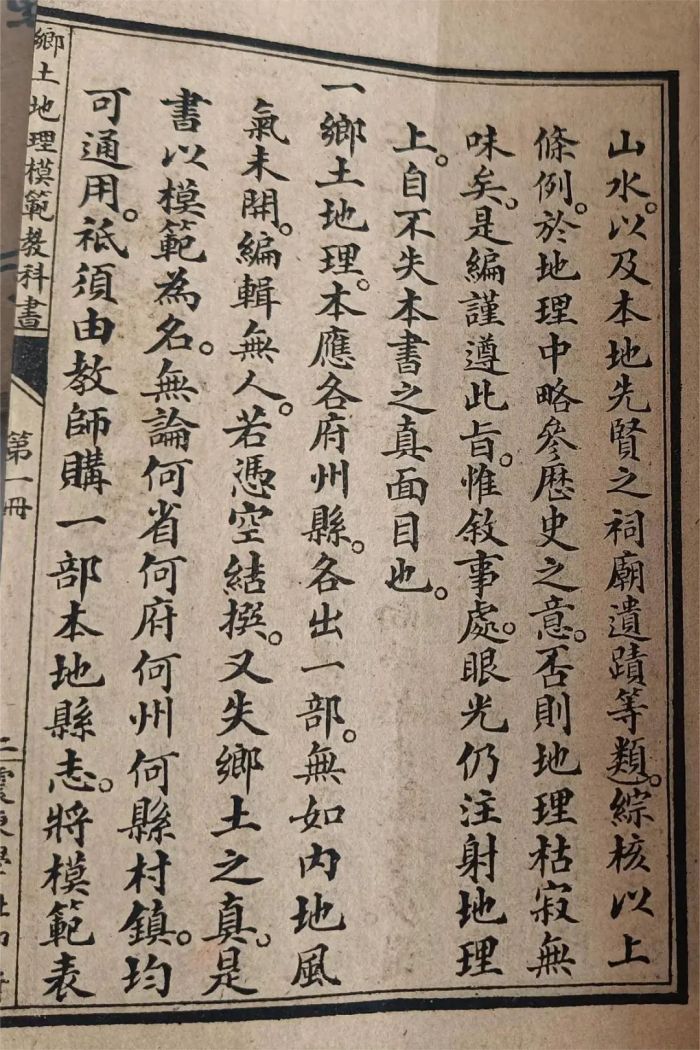 山水。以及本地先賢之祠廟遺蹟等類。綜核以上
條例。於地理中略參歷史之意。否則地理枯寂無
味矣。是編謹遵此旨。惟敘事處。眼光仍注射地理
上。自不失本書之真面目也。
一鄉土地理。本應各府州縣。各出一部。無如內地風
氣未開。編輯無人。若憑空結撰。又失鄉土之真。是
書以模範為名。無論何省何府何州何縣村鎮。均
可通用。祗須由教師購一部本地縣志。將模範表
鄉土地理模範教科書
第一冊
二